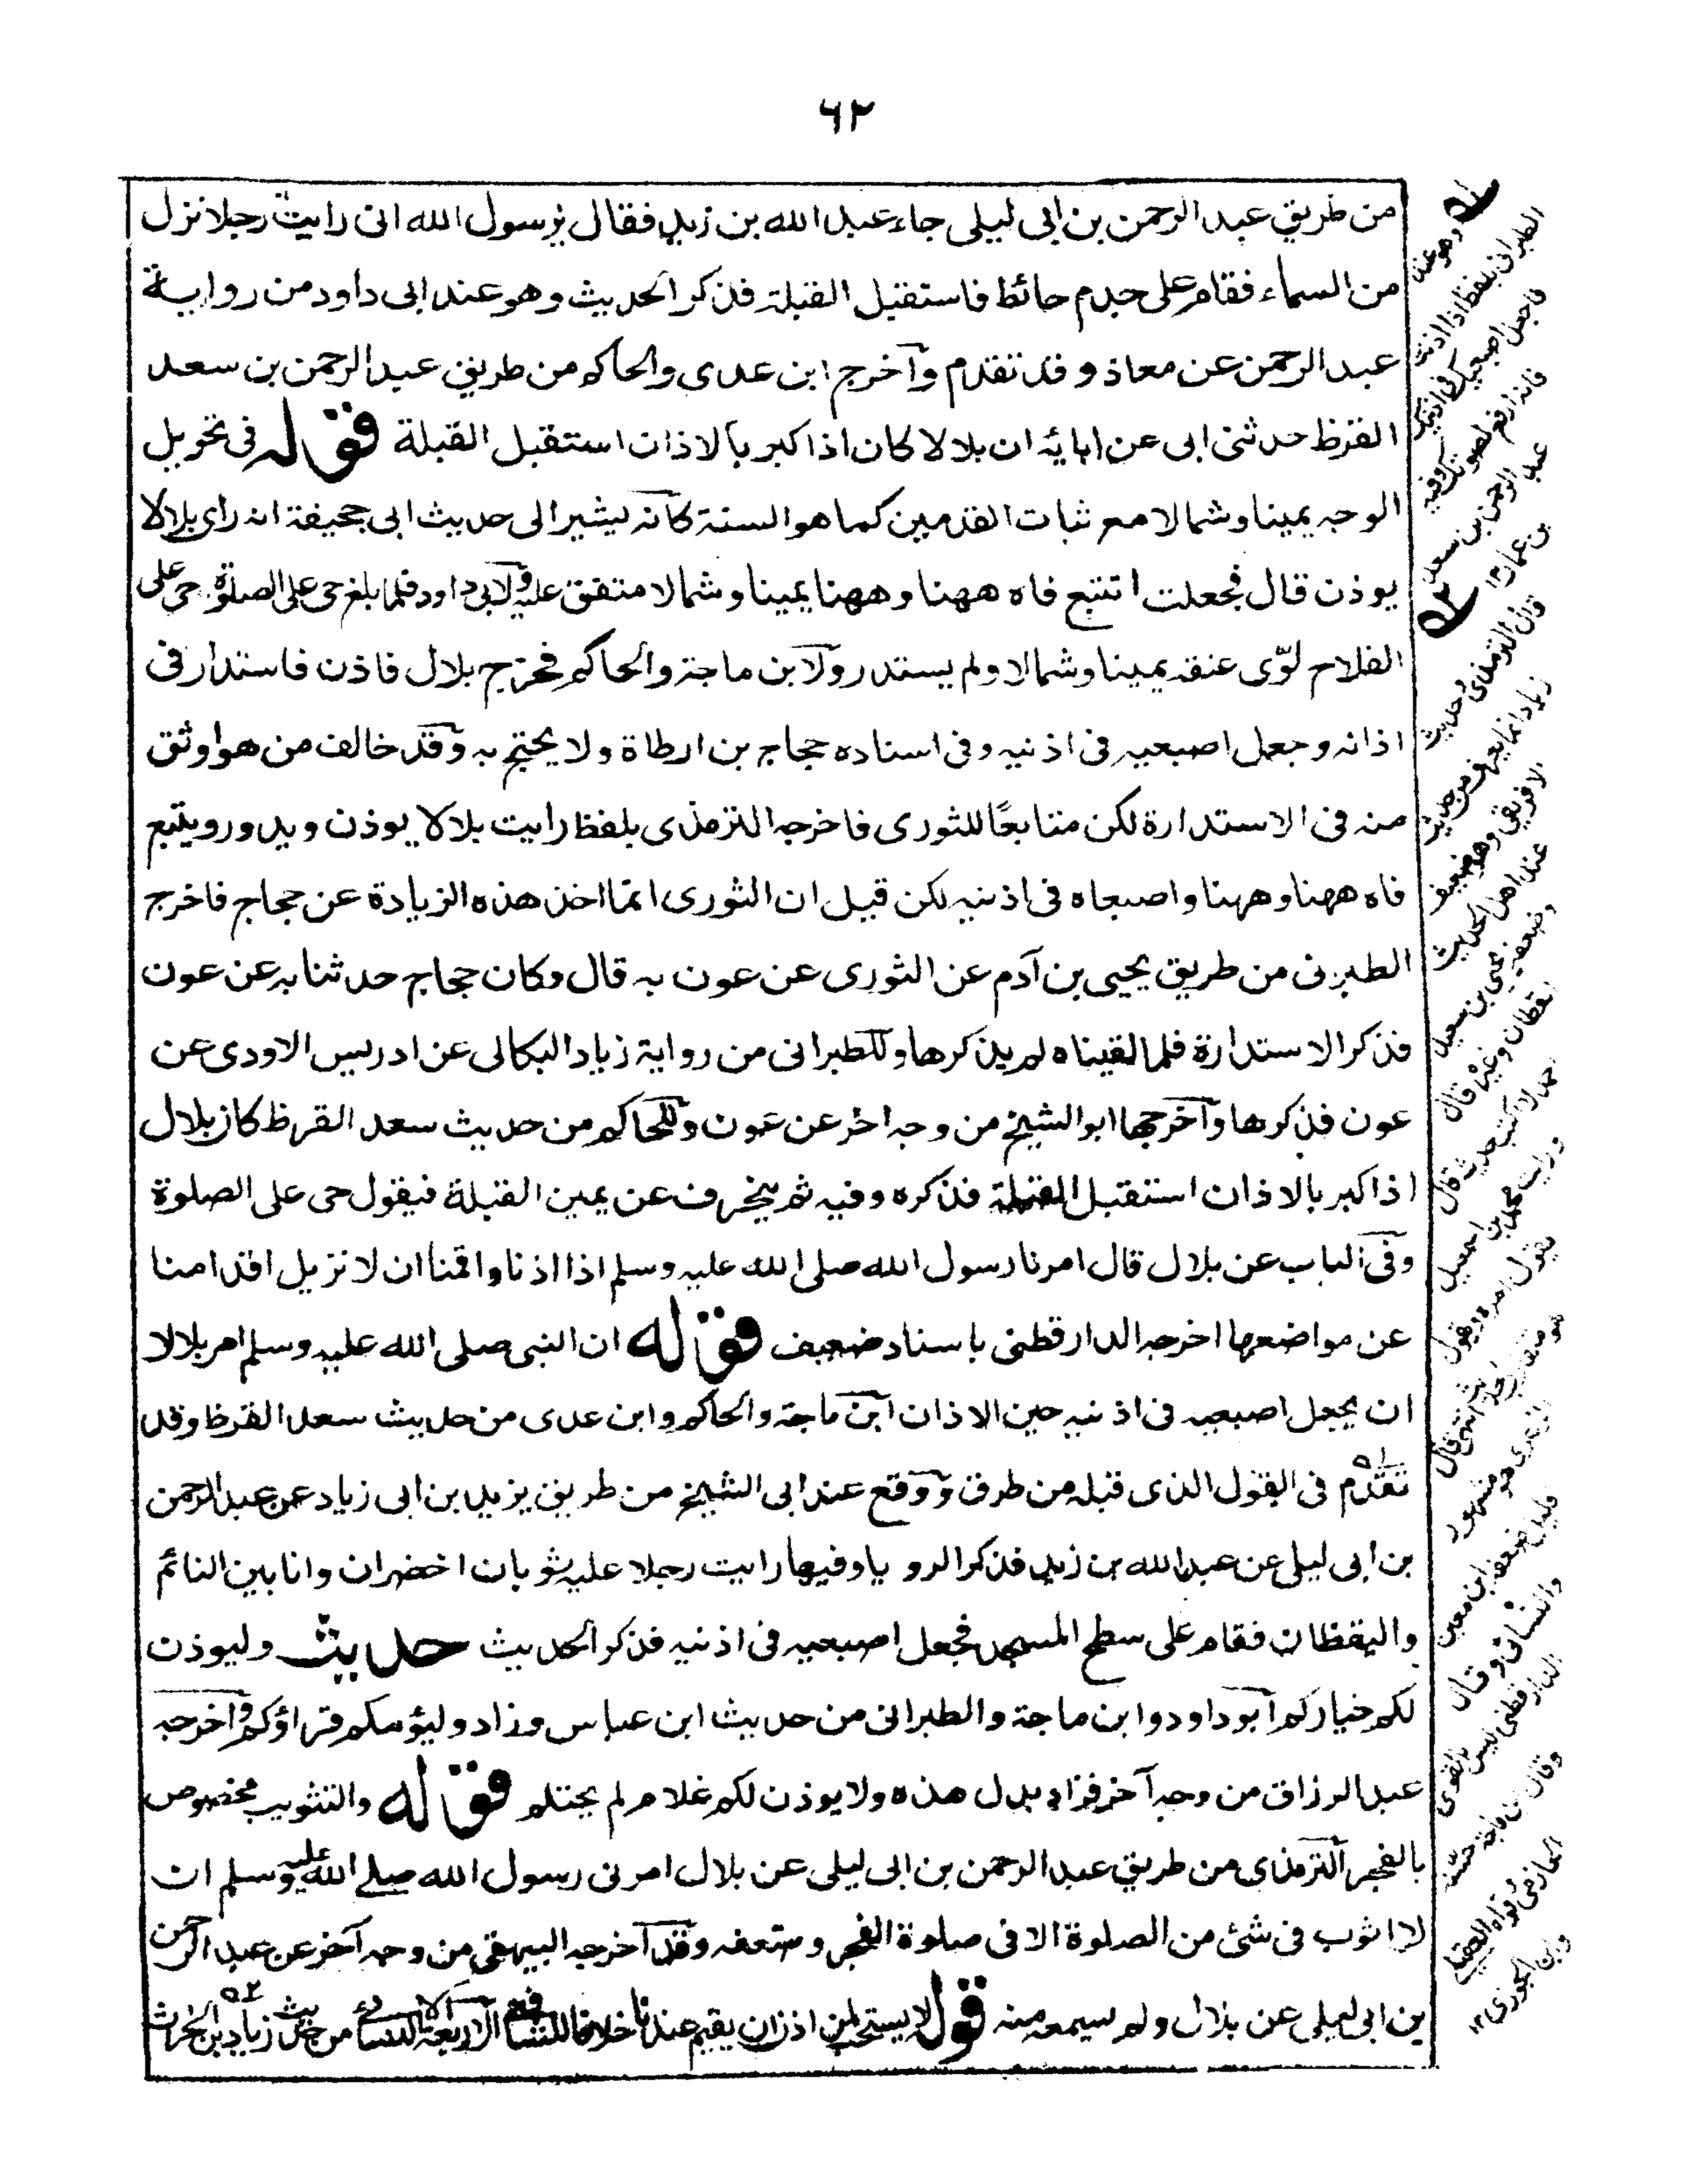 ٦٢
من طريق عبد الرحمن بن ابى ليلى جاء عبد الله بن زيد فقال يرسول الله انى رايت رجلا نزل
من السماء فقام على جدم حائط فاستقبل القبلة فذكر الحديث وهو عند ابى داود من رواية
عبد الرحمن عن معاذ وقد تقدم وآخرج ابن عدى والحاكم من طريق عبد الرحمن بن سعد
القرظ حدثنى ابى عن ابائه ان بلالا كان اذا كبر بالاذان استقبل القبلة قوله فى تحويل
الوجه يمينا وشمالا مع ثبات القدمين كما هو السنة كآنه يشير الى حديث ابى جحيفة انه راى بلالا
يوذن قال فجعلت اتتبع فاه ههنا وههنا يمينا وشمالا متفق عليه ولابى داود فلما بلغ حى على الصلوة حى على
الفلاح لوّى عنقه يمينا وشمالا ولم يستدر ولآبن ماجة والحاكم فخرج بلال فاذن فاستدار فى
اذانه وجعل اصبعيه فى اذنيه وفى اسناده حجاج بن ارطاة ولا يحتج به وقد خالف من هو اوثق
منه فى الاستدارة لكن متابعًا للثورى فاخرجه الترمذى بلفظ رايت بلالا يوذن ويدور ويتبع
فاه ههنا وههنا واصبعاه فى اذنيه لكن قيل ان الثورى انما اخذ هذه الزيادة عن حجاج فاخرج
الطبرنى من طريق يحيى بن آدم عن الثورى عن عون به قال وكان حجاج حدثنا به عن عون
فذكر الاستدارة فلما لقيناه لم يذكرها وللطبرانى من رواية زياد البكالى عن ادريس الاودى عن
عون فذكرها وآخرجها ابو الشيخ من وجه اخر عن عون وللحاكم من حديث سعد القرظ كان بلال
اذا كبر بالاذان استقبل القبلة فذكره وفيه ثم ينحرف عن يمين القبلة فيقول حى على الصلوة
وفى الباب عن بلال قال امرنا رسول الله صلى الله عليه وسلم اذا اذنا واقمنا ان لا نزيل اقدامنا
عن مواضعها اخرجه الدارقطنى باسناد ضعيف قوله ان النبى صلى الله عليه وسلم امر بلالا
ان يجعل اصبعيه فى اذنيه حين الاذان آبن ماجة والحاكم وابن عدى من حديث سعد القرظ وقد
تقدم فى القول الذى قبله من طرق ووقع عند ابى الشيخ من طريق يزيد بن ابى زياد عن عبد الرحمن
بن ابى ليلى عن عبد الله بن زيد فذكر الرويا وفيها رايت رجلا عليه ثوبان اخضران وانا بين النائم
واليقظان فقام على سطح المسجد فجعل اصبعيه فى اذنيه فذكر الحديث حديث وليوذن
لكم خياركم آبو داود وابن ماجة والطبرانى من حديث ابن عباس وزاد وليؤمكم قراؤكم وآخرجه
عبد الرزاق من وجه آخر فزاد بدل هذه ولا يوذن لكم غلام لم يحتلم قوله والتثويب مخصوص
بالفجر آلترمذى من طريق عبد الرحمن بن ابى ليلى عن بلال امرنى رسول الله صلے الله عليه وسلم ان
لا اثوب فى شئ من الصلوة الا فى صلوة الفجر وضعفه وقد آخرجه البيهقى من وجه آخر عن عبد الرحمن
بن ابى ليلى عن بلال ولم يسمعه منه قوله لا يستحب لمن اذن ان يقيم عندنا خلافا للشافعى الآربعة الا النسائى من حديث زياد بن الحارث
وهو عند
الطبرانى بلفظ اذا اذنت
فاجعل اصبعيك فى اذنيك
فانه ارفع لصوتك وفيه
عبد الرحمن بن سعد
بن عمار ١٢
قال الترمذى وحديث
زياد انما يعرف من حديث
الافريقى وهو ضعيف
عند اهل الحديث
وضعفه يحيى بن سعيد
القطان وغيره قال
احمد لا اكتب حديثه قال
ورايت محمد بن اسمعيل
يقوى امره ويقول
هو مقارب الحديث انتهى قال
ضعفه ابن معين
والنسائى وقال
الدارقطنى ليس بالقوى
وابن الجوزى ١٢